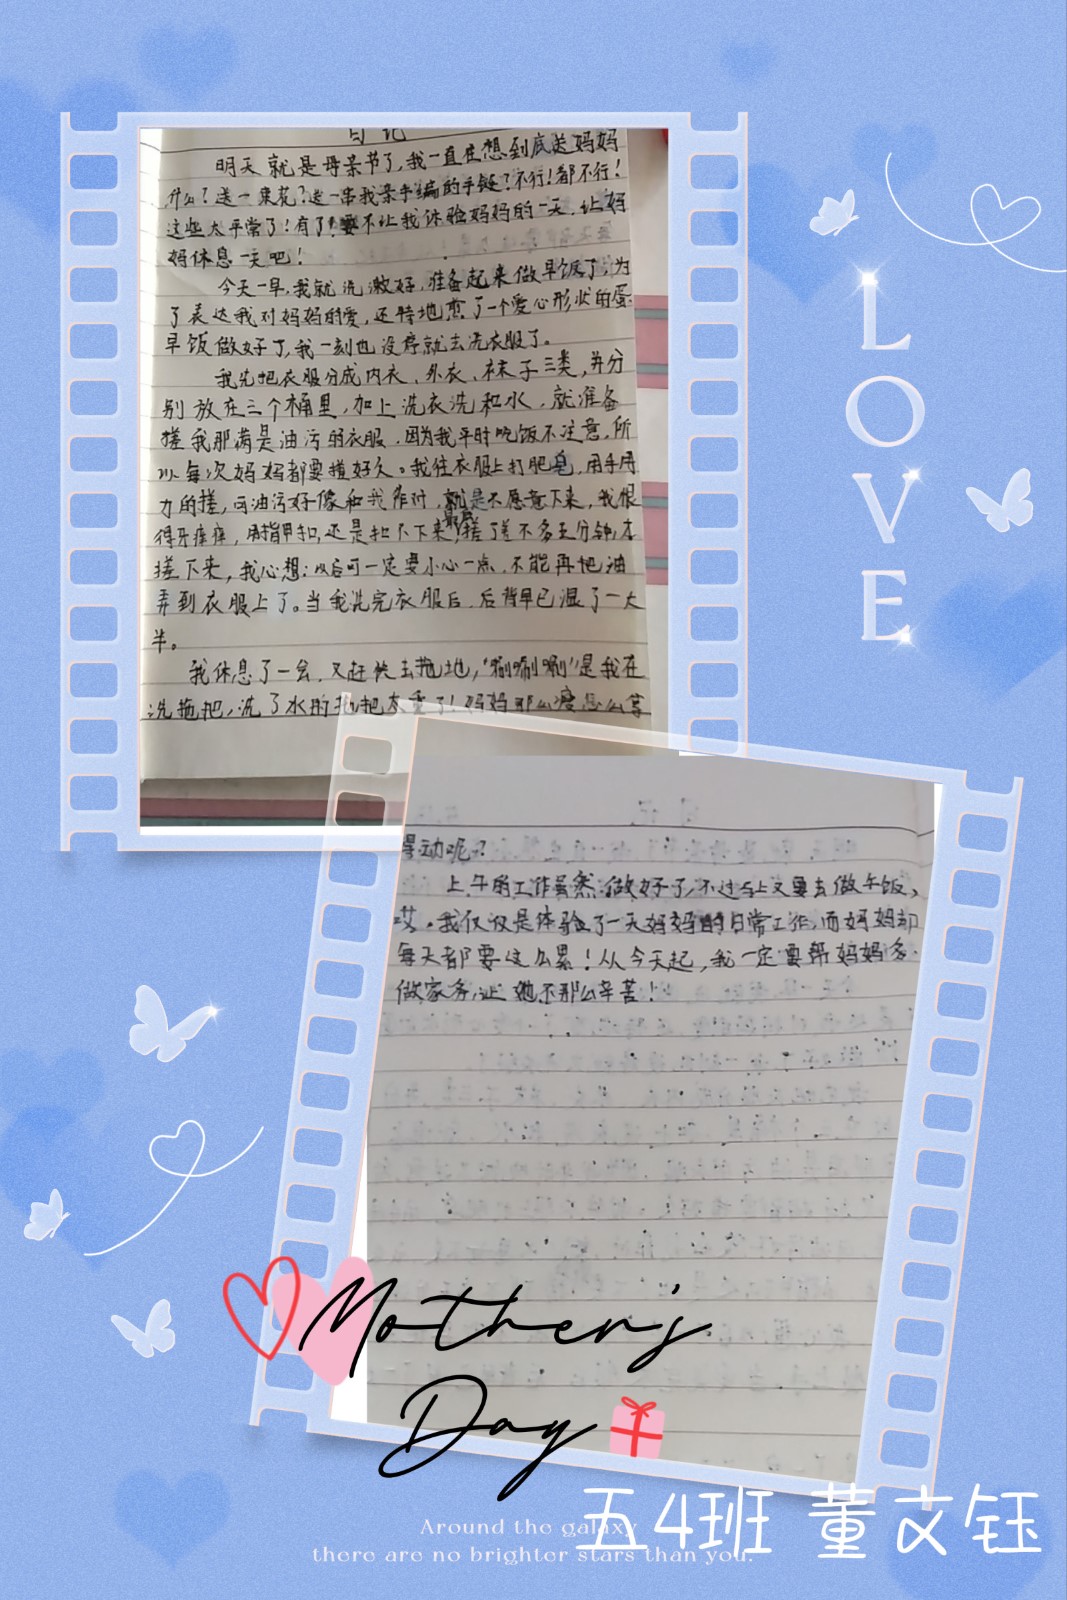 日记
明天就是母亲节了,我一直在想到底送妈妈
什么?送一束花?送一串我亲手编的手链?不行!都不行!
这些太平常了!有了!要不让我体验妈妈的一天,让妈
妈休息一天吧!
今天一早,我就洗漱好,准备起来做早饭了,为
了表达我对妈妈的爱,还特地煎了一个爱心形状的蛋.
早饭做好了,我一刻也没停就去洗衣服了。
我先把衣服分成内衣、外衣、袜子三类,并分
别放在三个桶里,加上洗衣洗和水,就准备
搓我那满是油污的衣服,因为我平时吃饭不注意,所
以每次妈妈都要搓好久。我往衣服上打肥皂,用手用
力的搓,可油污好像和我作对,就是不愿意下来,我恨
得牙痒痒,用指甲扣,还是扣不下来,最后搓了差不多五分钟,才
搓下来,我心想:以后可一定要小心一点,不能再把油
弄到衣服上了。当我洗完衣服后,后背早已湿了一大
半。
我休息了一会,又赶快去拖地,"唰唰唰"是我在
洗拖把,洗了水的拖把太重了!妈妈那么瘦怎么拿
得动呢?
上午的工作虽然做好了,不过马上又要去做午饭,
哎。我仅仅是体验了一天妈妈的日常工作,而妈妈却
每天都要这么累!从今天起,我一定要帮妈妈多
做家务,让她不那么辛苦!
LOVE
Mother's
Day
五4班 董文钰
Around the galaxy
there are no brighter stars than you.